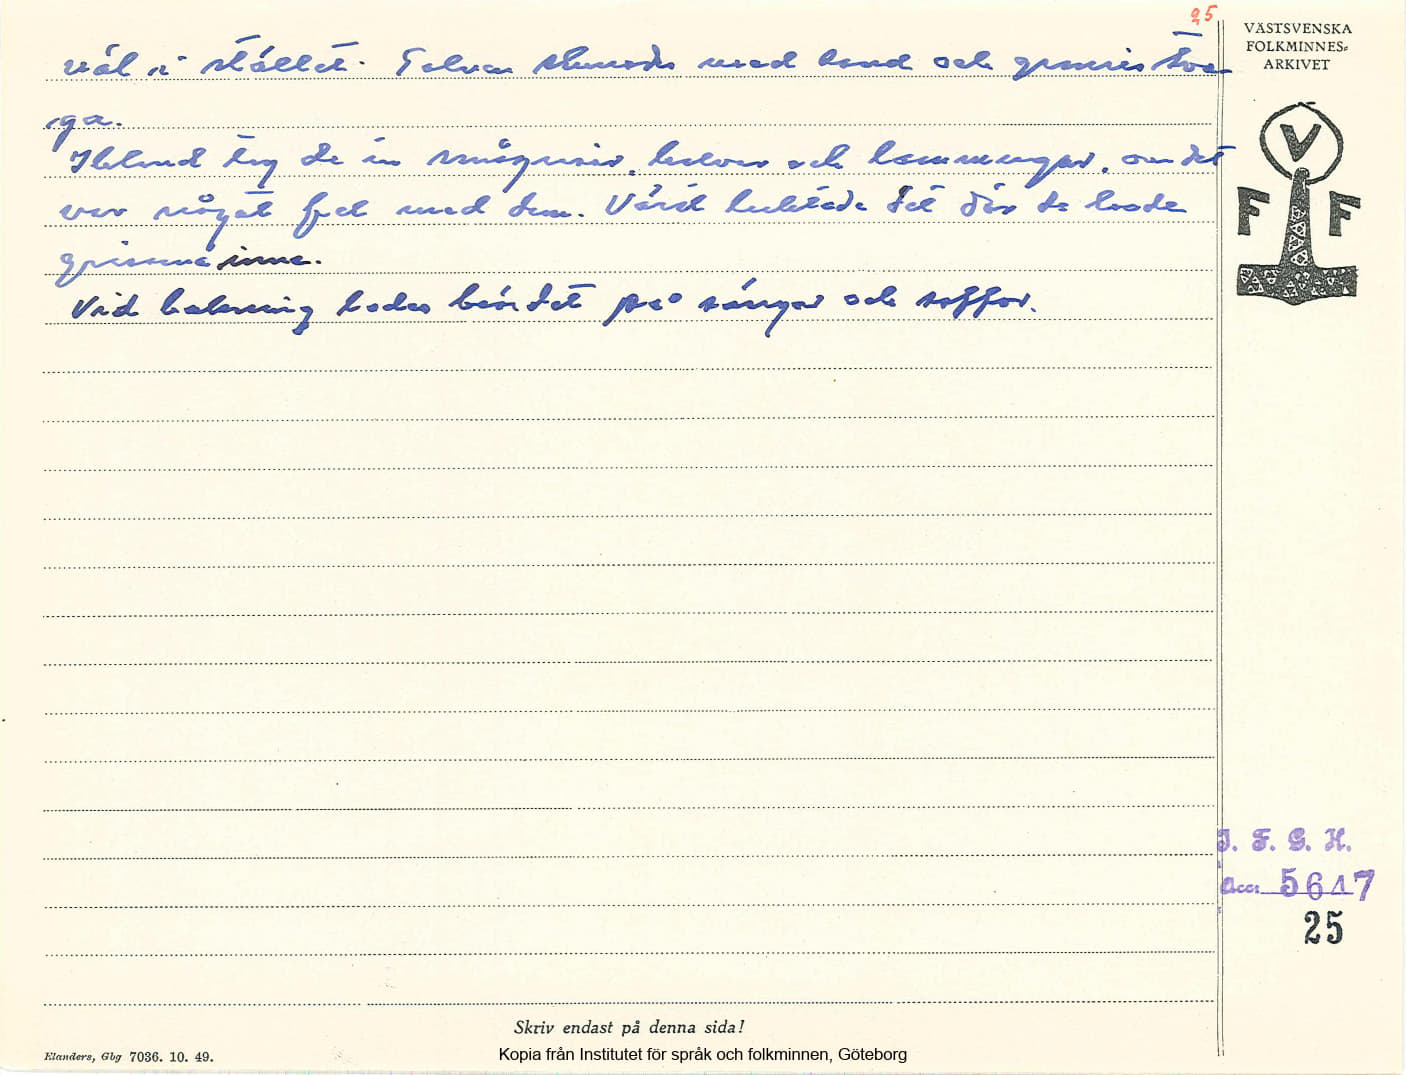 25
väl i stället. Golven skurades med sand och granris två-
iga.
Ibland tog de in smågrisar, kalvar och lammungar, om det
var något fel med dem. Värst luktade det där de hade
grisarna inne.
Vid bakning lades brödet på sängar och soffor.
VÄSTSVENSKA
FOLKMINNES=
ARKIVET
V
F F
I. F. G. H.
Acc. 5647
25
Skriv endast på denna sida!
Elanders, Gbg 7036. 10. 49.
Kopia från Institutet för språk och folkminnen, Göteborg